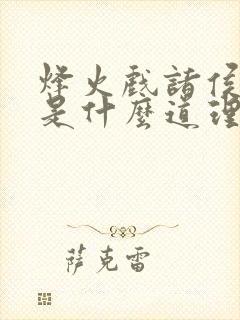 烽火戲諸侯
是什麼道理
萨克雷